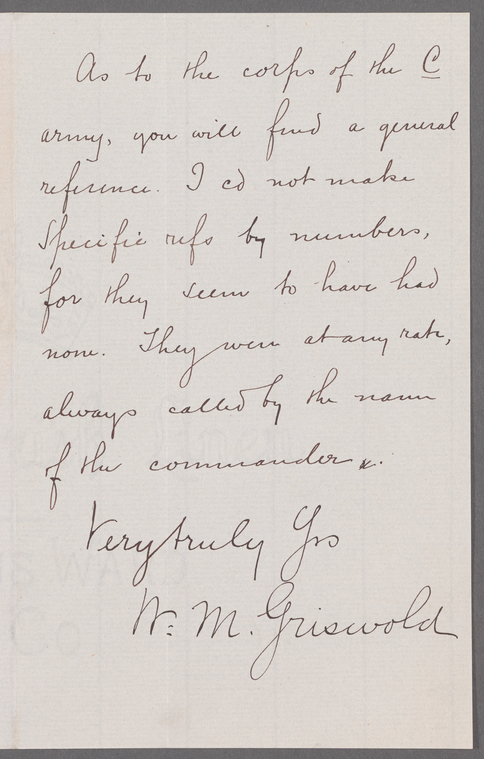 As to the corps of the C
army, you will find a general
reference. I cd not make
Specific refs by numbers,
for they seem to have had
none. They were at any rate,
always called by the name
of the commander.
Very truly Yrs
W: M. Griswold